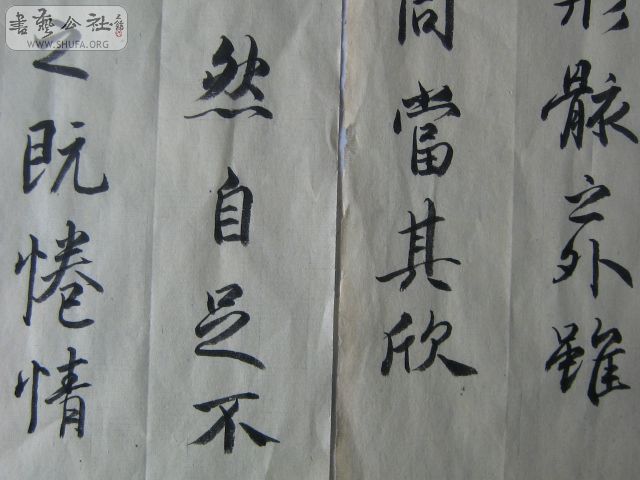 形骸之外雖
同當其欣
然自足不
之既惓情
書藝公社
WWW.SHUFA.ORG